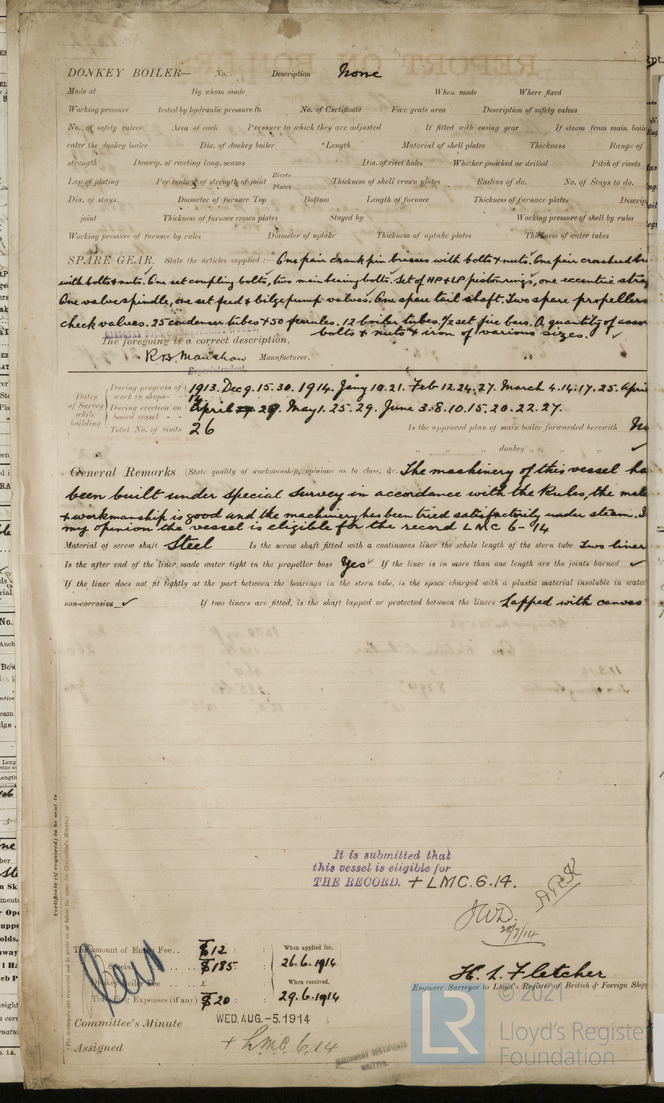 DONKEY BOILER— No. Description None
Made at By whom made When made Where fixed
Working pressure tested by hydraulic pressure to No. of Certificate Fire grate area Description of safety valves
No. of safety valves Area of each Pressure to which they are adjusted If fitted with easing gear If steam from main boil
enter the donkey boiler Dia. of donkey boiler Length Material of shell plates Thickness Range of
strength Descrip. of riveting long. seams Dia. of rivet holes Whether punched or drilled Pitch of rivets
Lap of plating Per centage of strength of joint Rivets Plates Thickness of shell crown plates Radius of do. No. of Stays to do.
Dia. of stays. Diameter of furnace Top Bottom Length of furnace Thickness of furnace plates Descrip
joint Thickness of furnace crown plates Stayed by Working pressure of shell by rules
Working pressure of furnace by rules Diameter of uptake Thickness of uptake plates Thickness of water tubes
SPARE GEAR. State the articles supplied:— One pair crank pin brasses with bolts & nuts. One pair crosshead br
with bolts & nuts. One set coupling bolts, two main bearing bolts. Set of HP & LP piston rings, one eccentric stra
One valve spindle, one set feed & bilge pump valves. One spare tail shaft. Two spare propellers
check valves. 25 condenser tubes & 50 ferrules. 12 boiler tubes ½ set fire bars. A quantity of asso
bolts & nuts & iron of various sizes.
The foregoing is a correct description,
Manufacturer.
Superintendent.
Dates of Survey while building
During progress of work in shops— 1913. Dec 9. 15. 30. 1914. Jany 10. 21. Feb 12. 24. 27. March 4. 14. 17. 25. April
During erection on board vessel— April 29. May 1. 25. 29. June 3. 8. 10. 15. 20. 22. 27.
Total No. of visits 26 Is the approved plan of main boiler forwarded herewith
" " " donkey " " "
General Remarks (State quality of workmanship, opinions as to class, &c. The machinery of this vessel ha
been built under special survey in accordance with the Rules, the mate
& workmanship is good and the machinery has been tried satisfactorily under steam. I
my opinion the vessel is eligible for the record LMC 6-14
Material of screw shaft Steel Is the screw shaft fitted with a continuous liner the whole length of the stern tube Two liner
Is the after end of the liner made water tight in the propeller boss Yes If the liner is in more than one length are the joints burned
If the liner does not fit tightly at the part between the bearings in the stern tube, is the space charged with a plastic material insoluble in water
non-corrosive If two liners are fitted, is the shaft lapped or protected between the liners Lapped with canvas
It is submitted that
this vessel is eligible for
THE RECORD. + LMC. 6. 14.
JWD.
28/7/14
The amount of Entry Fee .. $12 When applied for,
$185 26.6.1914
Donkey Boiler Fee .. £ When received,
Travelling Expenses (if any) $20 29.6.1914
H. L. Fletcher
Engineer Surveyor to Lloyd's Register of British & Foreign Ship
Committee's Minute WED. AUG.-5.1914
Assigned + LMC. 6. 14
MACHINERY CERTIFICATE
WRITTEN.
© 2021
LR
Lloyd's Registe
Foundation